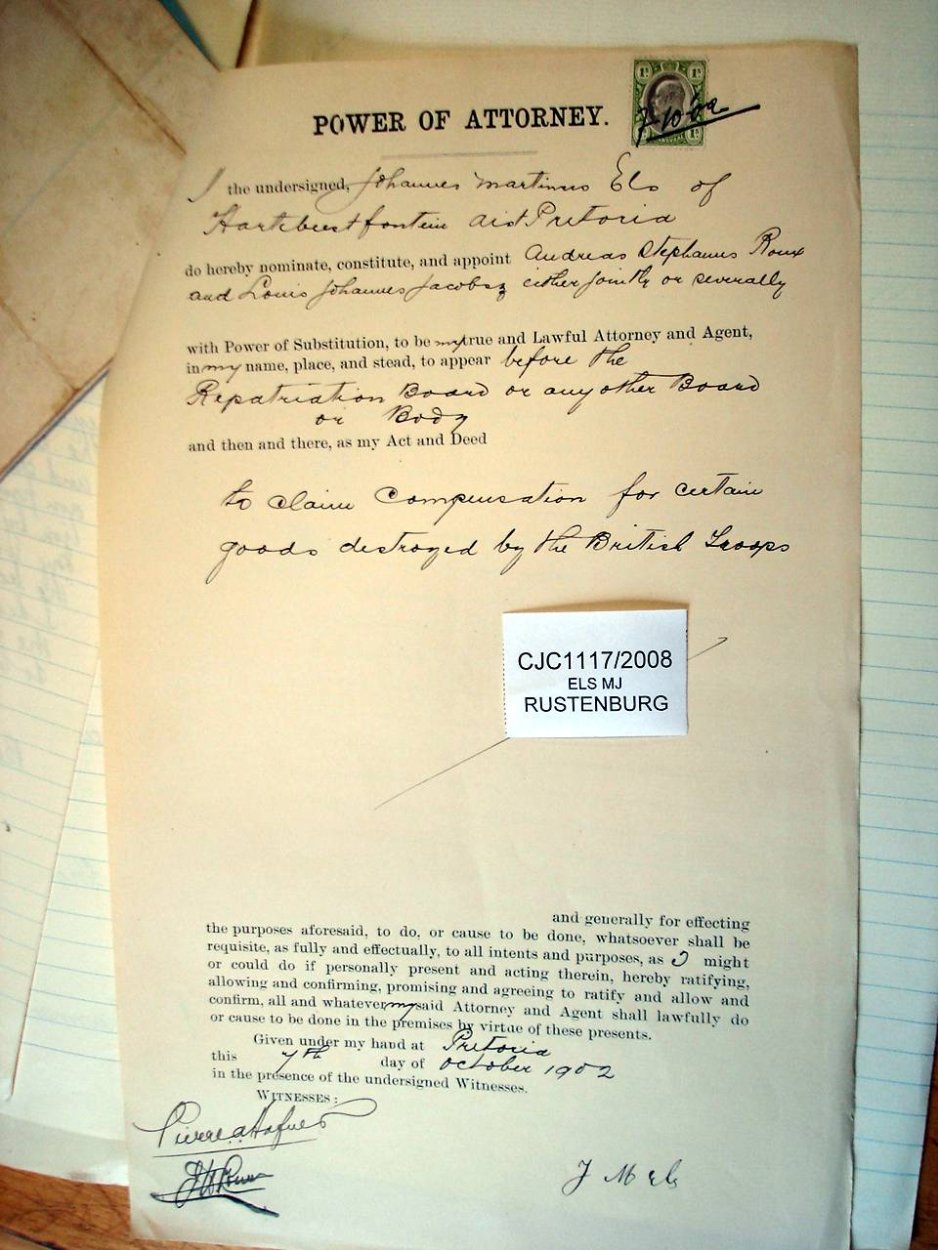 1ᴰ 1ᴰ
POWER OF ATTORNEY.
7-10-02
1ᴰ
I the undersigned, Johannes Martinus Els of
Hartebeestfontein dist Pretoria
do hereby nominate, constitute, and appoint Andreas Stephanus Roux
and Louis Johannes Jacobsz either jointly or severally
with Power of Substitution, to be my true and Lawful Attorney and Agent,
in my name, place, and stead, to appear before the
Repatriation Board or any other Board
or Body
and then and there, as my Act and Deed
to claim Compensation for certain
goods destroyed by the British Troops
CJC1117/2008
ELS MJ
RUSTENBURG
and generally for effecting
the purposes aforesaid, to do, or cause to be done, whatsoever shall be
requisite, as fully and effectually, to all intents and purposes, as I might
or could do if personally present and acting therein, hereby ratifying,
allowing and confirming, promising and agreeing to ratify and allow and
confirm, all and whatever my said Attorney and Agent shall lawfully do
or cause to be done in the premises by virtue of these presents.
Given under my hand at Pretoria
this 7th day of October 1902
in the presence of the undersigned Witnesses.
WITNESSES:
J M Els